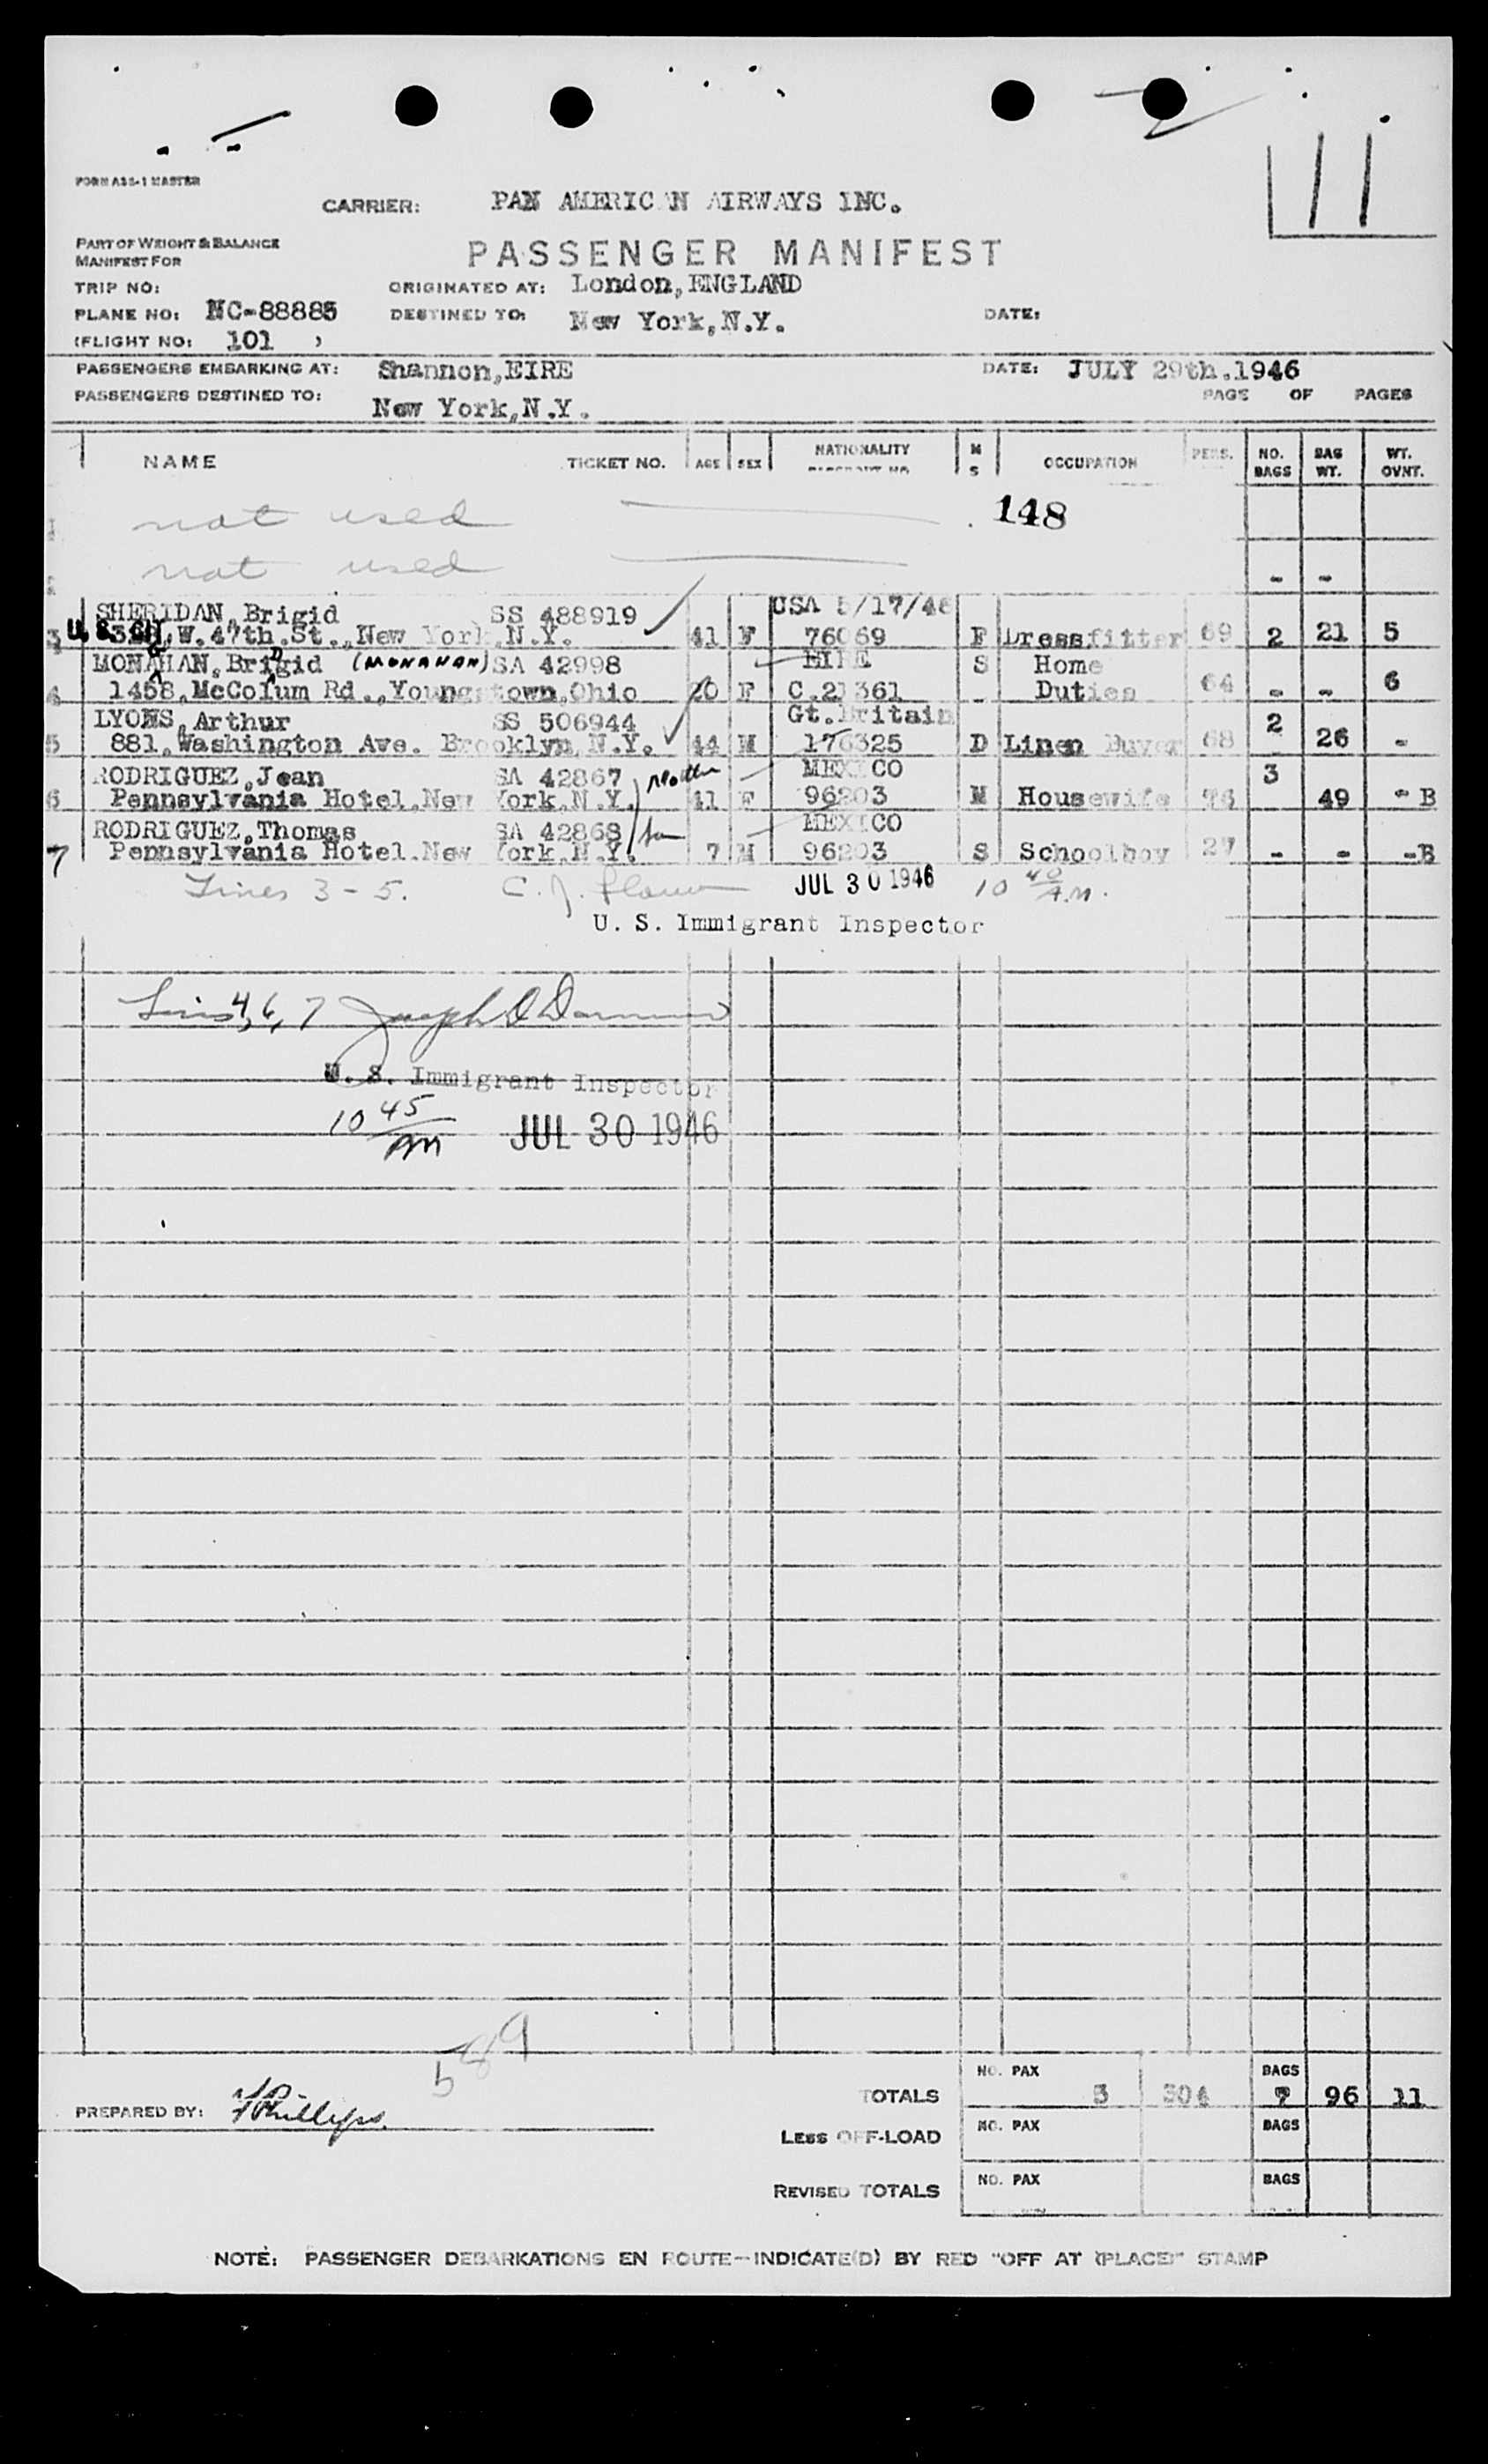 11
FORM ASS-1 MASTER
CARRIER: PAN AMERICAN AIRWAYS INC.
PART OF WEIGHT & BALANCE
MANIFEST FOR
PASSENGER MANIFEST
TRIP NO: ORIGINATED AT: London, ENGLAND
PLANE NO: NC-88885 DESTINED TO: New York, N.Y. DATE:
(FLIGHT NO: 101 )
PASSENGERS EMBARKING AT: Shannon, EIRE DATE: JULY 29th. 1946
PASSENGERS DESTINED TO: New York, N.Y. PAGE OF PAGES
NAME TICKET NO. AGE SEX NATIONALITY M S OCCUPATION PERS. NO. BAGS BAG WT. WT. OVNT.
not used 148
not used - -
SHERIDAN, Brigid SS 488919 USA 5/17/46
3 U.S. W. 47th. St., New York, N.Y. 41 F 76069 F Dressfitter 69 2 21 5
MONAHAN, Brigid (MONAHAN) SA 42998 EIRE S Home
4 1458, McColum Rd., Youngstown, Ohio 20 F C.21361 - Duties 64 - - 6
LYONS, Arthur SS 506944 Gt. Britain 2
5 881, Washington Ave. Brooklyn, N.Y. 44 M 176325 D Linen Buyer 68 26 -
RODRIGUEZ, Jean SA 42867 Mother MEXICO 3
6 Pennsylvania Hotel, New York, N.Y. 41 F 96203 M Housewife 76 49 - B
RODRIGUEZ, Thomas SA 42868 Son MEXICO
7 Pennsylvania Hotel. New York, N.Y. 7 M 96203 S Schoolboy 27 - - -B
Lines 3-5. C. J. JUL 30 1946 10 40 A.M.
U. S. Immigrant Inspector
Lines 4, 6, 7 Joseph
U. S. Immigrant Inspector
10 45 AM JUL 30 1946
589
NO. PAX BAGS
TOTALS 5 304 7 96 11
PREPARED BY: Phillips.
NO. PAX BAGS
LESS OFF-LOAD
NO. PAX BAGS
REVISED TOTALS
NOTE: PASSENGER DEBARKATIONS EN ROUTE--INDICATE(D) BY RED "OFF AT (PLACE)" STAMP